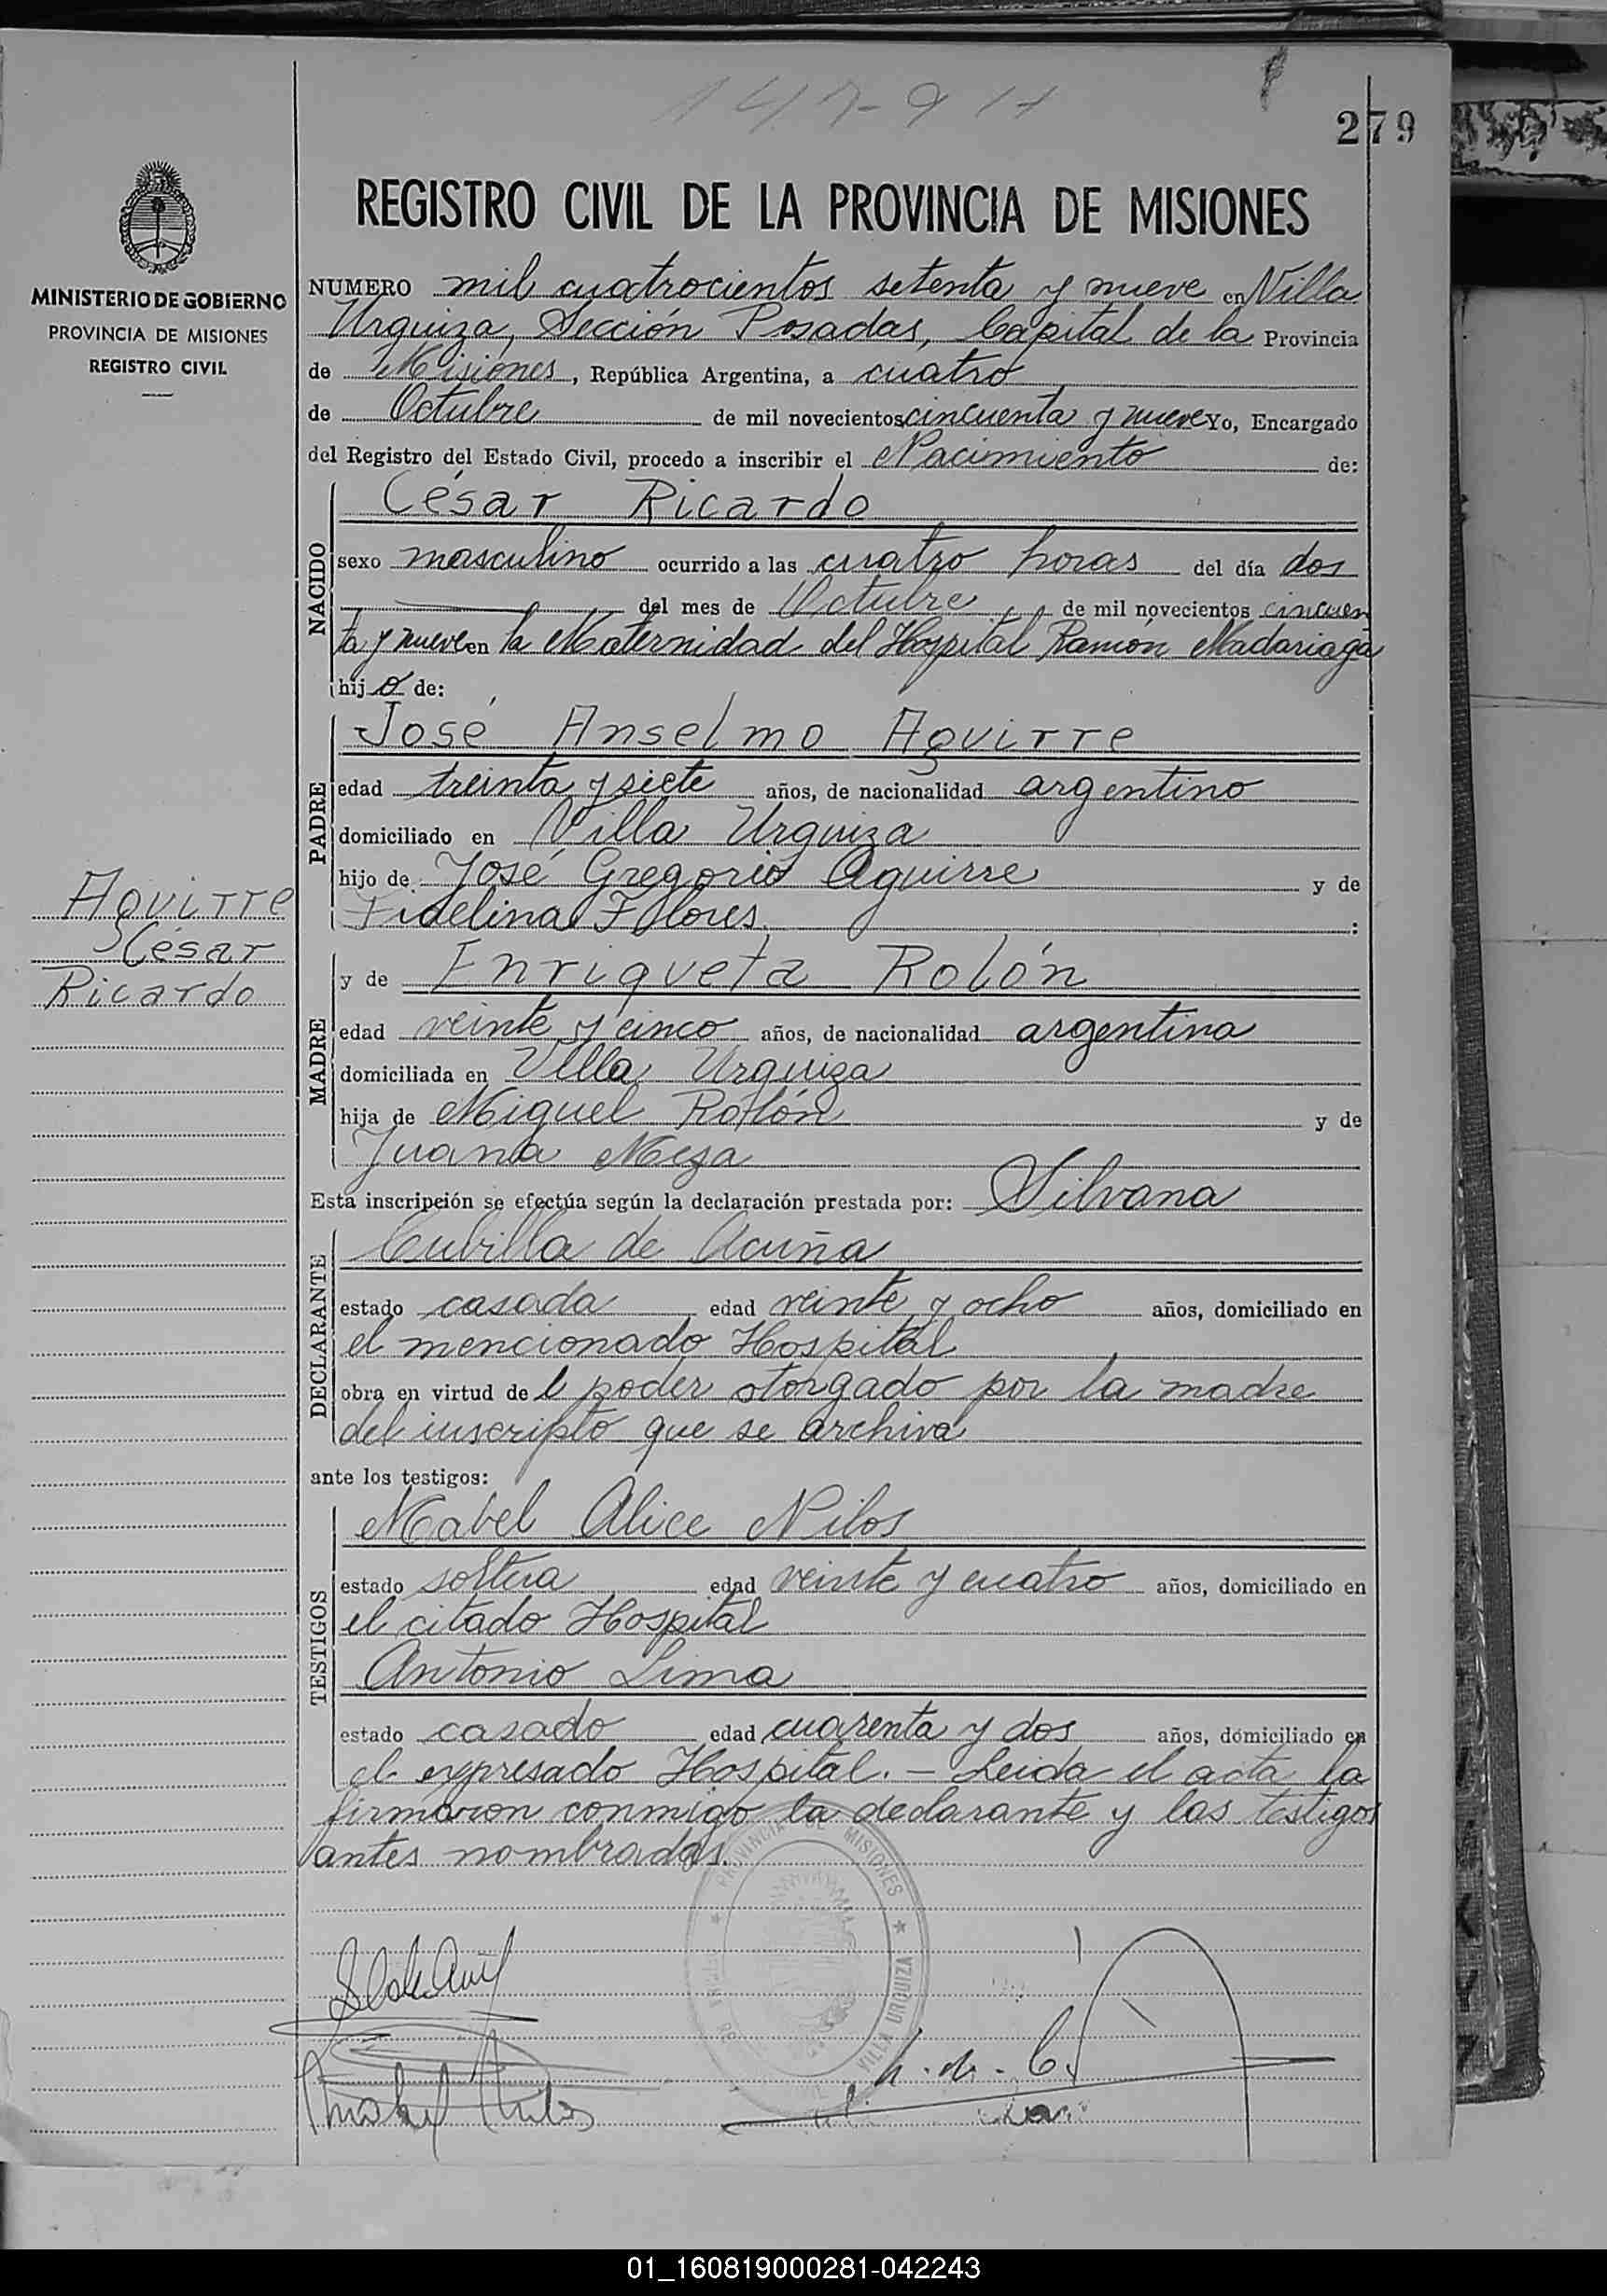 279
REGISTRO CIVIL DE LA PROVINCIA DE MISIONES
MINISTERIO DE GOBIERNO
PROVINCIA DE MISIONES
REGISTRO CIVIL
NUMERO mil cuatrocientos setenta y nueve en Villa
Urquiza, Sección Posadas, Capital de la Provincia
de Misiones, República Argentina, a cuatro
de Octubre de mil novecientos cincuenta y nueve Yo, Encargado
del Registro del Estado Civil, procedo a inscribir el Nacimiento de:
NACIDO
César Ricardo
sexo masculino ocurrido a las cuatro horas del día dos
del mes de Octubre de mil novecientos cincuen
ta y nueve en la Maternidad del Hospital Ramón Madariaga
hijo de:
PADRE
José Anselmo Aguirre
edad treinta y siete años, de nacionalidad argentino
domiciliado en Villa Urquiza
hijo de José Gregorio Aguirre y de
Fidelina Flores :
Aguirre
César
Ricardo
MADRE
y de Enriqueta Rolón
edad veinte y cinco años, de nacionalidad argentina
domiciliada en Villa Urquiza
hija de Miguel Rolón y de
Juana Meza
Esta inscripción se efectúa según la declaración prestada por: Silvana
DECLARANTE
Cubilla de Acuña
estado casada edad veinte y ocho años, domiciliado en
el mencionado Hospital
obra en virtud del poder otorgado por la madre
del inscripto que se archiva
ante los testigos:
TESTIGOS
Mabel Alice Nilos
estado soltera edad veinte y cuatro años, domiciliado en
el citado Hospital
Antonio Lima
estado casado edad cuarenta y dos años, domiciliado en
el expresado Hospital. — Leida el acta la
firmaron conmigo la declarante y los testigos
antes nombrados.
PROVINCIA DE MISIONES
VILLA URQUIZA
01_160819000281-042243